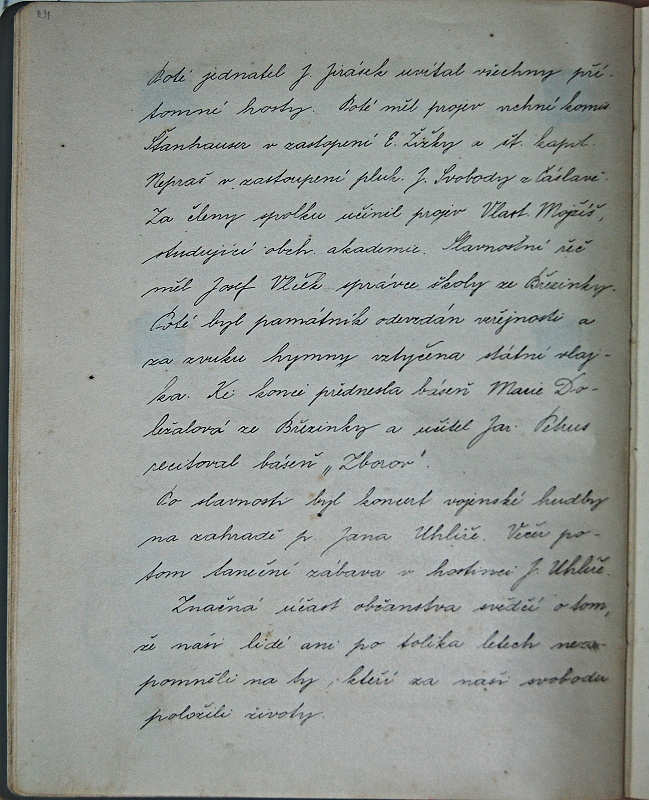 Poté jednatel J. Jirásek uvítal všechny pří-
tomné hosty. Poté měl projev vrchní komis
Štanhauser v zastopení E. Žižky a št. kapt.
Nepraš v zastoupení pluk. J. Svobody z Čáslavě.
Za členy spolku učinil projev Vlast. Mojžíš,
studující obch. akademie. Slavnostní řeč
měl Josef Vlček správce školy ze Březinky.
Poté byl památník odevzdán veřejnosti a
za zvuku hymny vztyčena státní vlaj-
ka. Ke konci přednesla báseň Marie Do-
ležalová ze Březinky a učitel Jar. Petrus
recitoval báseň „Zborov".
Po slavnosti byl koncert vojenské hudby
na zahradě p. Jana Uhlíře. Večer po-
tom taneční zábava v hostinci J. Uhlíře.
Značná účast občanstva svědčí o tom,
že naši lidé ani po tolika letech neza-
pomněli na ty, kteří za naši svobodu
položili životy.